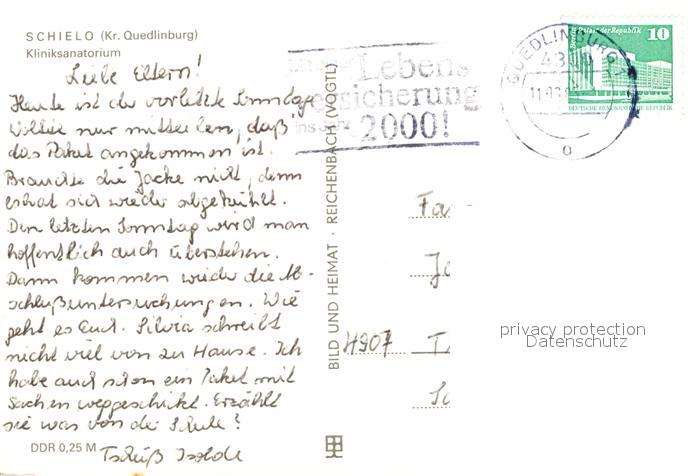 SCHIELO (Kr. Quedlinburg)
Kliniksanatorium
Liebe Eltern!
Heute ist der vorletzte Sonntag
wollte nur mitteilen, daß
das Paket angekommen ist.
Brauchte die Jacke nicht, denn
es hat sich wieder abgekühlt.
Den letzten Sonntag wird man
hoffentlich auch überstehen.
Dann kommen wieder die Ab-
schlußuntersuchungen. Wie
geht es Euch. Silvia schreibt
nicht viel von zu Hause. Ich
habe auch schon ein Paket mit
Sachen weggeschickt. Erzählt
sie was von der Schule?
Tschüß Isolde
DDR 0,25 M
BILD UND HEIMAT · REICHENBACH (VOGTL)
Lebens
sicherung
ins Jahr 2000!
QUEDLINBURG
4300
Palast der Republik 10
DEUTSCHE DEMOKRATISCHE REPUBLIK
Fa
4307
privacy protection
Datenschutz